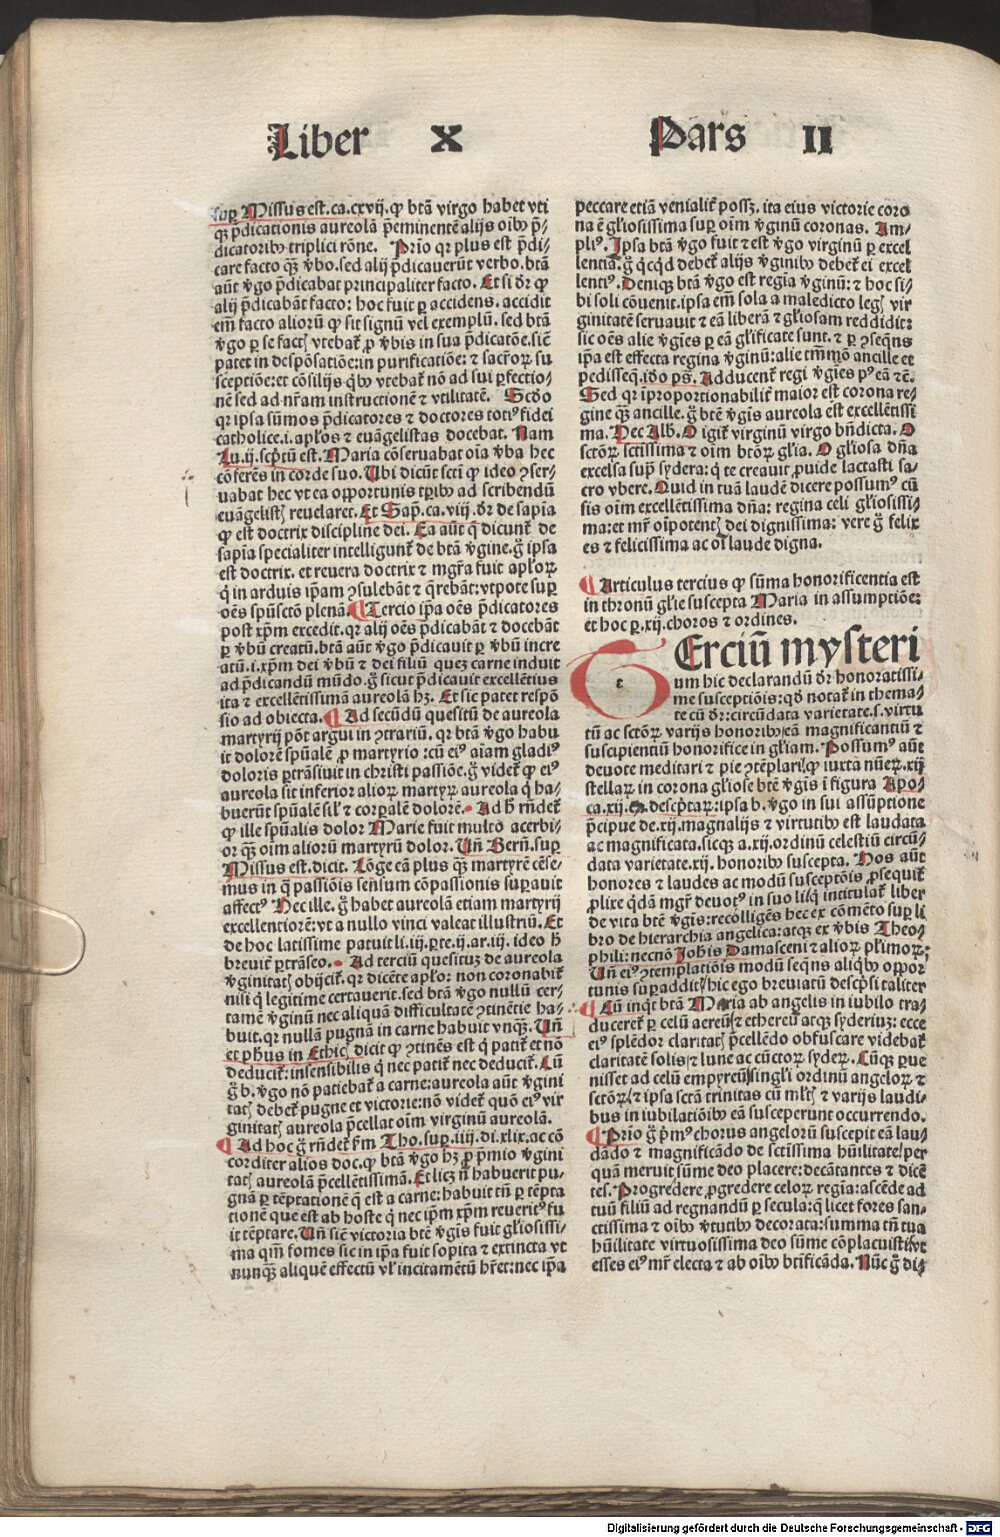 Liber X Pars II
sup Missus est.ca.cxvij.ꝙ btā virgo habet vti
qꝫ p̄dicationis aureolā p̄eminentē alijs oībꝰ p̄-
dicatoribꝰ triplici rōne. Prīo qr plus est p̄di-
care facto qꝫ v̄bo.sed alij p̄dicauerūt verbo.btā
aūt v̄go p̄dicabat principaliter facto. Et si dr̄ ꝙ
alij p̄dicabāt facto: hoc fuit ꝑ accidens. accidit
em̄ facto aliorū ꝙ sit signū vel exemplū. sed btā
v̄go ꝑ se factꝭ vtebat̄ ꝓ v̄bis in sua p̄dicatōe.sic̄
patet in despōsatiōe:in purificatiōe: ⁊ sacr̄oꝝ su
sceptiōe:et cōsilijs qⁱbꝰ vtebat̄ nō ad sui ꝑfectio-
nē sed ad nr̄am instructionē ⁊ vtilitatē. Scd̄o
qr ipsa sūmos p̄dicatores ⁊ doctores totiꝰ fidei
catholice.i.apl̄os ⁊ euāgelistas docebat. Nam
Lu.ij.scp̄tū est. Maria cōseruabat oīa v̄ba hec
cōferēs in corde suo. Ubi dicūt sctī ꝙ ideo ꝯser-
uabat hec vt ea opportunis tꝑibꝰ ad scribendū
euāgelistꝭ reuelaret. Et Sap̄.ca.viij.dr̄ de sapīa
ꝙ est doctrix discipline dei. Ea aūt q̄ dicunt̄ de
sapīa specialiter intelligunt̄ de btā v̄gine.g̊ ipsa
est doctrix. et reuera doctrix ⁊ mgr̄a fuit apl̄oꝝ
qⁱ in arduis ip̄am ꝯsulebāt ⁊ q̄rebāt: vtpote suꝑ
oēs spūsctō plenā. Tercio ip̄a oēs p̄dicatores
post xp̄m excedit.qr alij oēs p̄dicabāt ⁊ docebāt
ꝑ v̄bū creatū.btā aūt v̄go p̄dicauit ꝑ v̄bū incre
atū.i.xp̄m dei v̄bū ⁊ dei filiū quez carne induit
ad p̄dicandū mūdo.g̊ sicut p̄dicauit excellētius
ita ⁊ excellētissimā aureolā hꝫ. Et sic patet respō
sio ad obiecta. Ad secūdū quesitū de aureola
martyrij pōt argui in ꝯtrariū. qr btā v̄go habu
it dolorē spūalē ꝓ martyrio :cū eiꝰ aīam gladiꝰ
doloris ꝑtrāsiuit in christi passiōe.g̊ videt̄ ꝙ eiꝰ
aureola sit inferior alioꝝ martyꝝ aureola qⁱ ha-
buerūt spūalē sil̄ ⁊ corꝑalē dolorē. Ad h̄ rn̄det̄
ꝙ ille spūalis dolor Marie fuit multo acerbi-
or qꝫ oīm aliorū martyrū dolor. Un̄ Bern̄.suꝑ
Missus est.dicit. Lōge eā plus qꝫ martyrē cēse-
mus in q̄ passiōis sensum cōpassionis suꝑauit
affectꝰ Hec ille. g̊ habet aureolā etiam martyrij
excellentiorē:vt a nullo vinci valeat illustriū. Et
de hoc latissime patuit li.iij.ꝑte.ij.ar.iij. ideo h̄
breuit̄ ꝑtrāseo. Ad terciū quesituꝫ de aureola
v̄ginitatꝭ obijcit̄. qr dicēte apl̄o: non coronabit̄
nisi qⁱ legitime certauerit.sed btā v̄go nullū cer-
tamē v̄ginū nec aliquā difficultatē ꝯtinētie ha-
buit.qr nullā pugnā in carne habuit vnqꝫ. Un̄
et ph̄us in Ethicꝭ dicit ꝙ ꝯtinēs est qⁱ patit̄ et nō
deducit̄: insensibilis qⁱ nec patit̄ nec deducit̄. Cū
g̊ b.v̄go nō patiebat̄ a carne:aureola aūt v̄gini
tatꝭ debet̄ pugne et victorie:nō videt̄ quō eiꝰ vir
ginitatꝭ aureola p̄cellat oīm virginū aureolā.
Ad hoc g̊ rn̄det̄ ẜm Tho.suꝑ.iiij.di.xlix.ac cō
corditer alios doc.ꝙ btā v̄go hꝫ ꝓ p̄mio v̄gini
tatꝭ aureolā p̄cellētissimā. Et licꝫ n̄ habuerit pu-
gnā ꝑ tēptationē q̄ est a carne:habuit tn̄ ꝑ tēpta
tionē que est ab hoste qⁱ nec ip̄m xp̄m reueritꝰ fu
it tēptare. Un̄ sic̄ victoria btē v̄gīs fuit gl̄iosissi-
ma qm̄ fomes sic in ip̄a fuit sopita ⁊ extincta vt
nunqꝫ aliquē effectū vl̄ incitamētū hr̄et:nec ip̄a
peccare etiā venialit̄ possꝫ. ita eius victorie coro
na ē gl̄iosissima suꝑ oīm v̄ginū coronas. Am-
pliꝰ. Ipsa btā v̄go fuit ⁊ est v̄go virginū ꝑ excel
lentiā.g̊ qⁱcqⁱd debet̄ alijs v̄ginibꝰ debet̄ ei excel
lentiꝰ. Deniqꝫ btā v̄go est regīa v̄ginū: ⁊ hoc si-
bi soli cōuenit.ipsa em̄ sola a maledicto legꝭ vir
ginitatē seruauit ⁊ eā liberā ⁊ gl̄iosam reddidit:
sic oēs alie v̄gies ꝑ eā gl̄ificate sunt. ⁊ ꝑ ꝯseqn̄s
ip̄a est effecta regina v̄ginū:alie tm̄mō ancille et
pedisseq̄.iō ps̄. Adducent̄ regi v̄gīes pꝰ eā ⁊c̄.
Sed qr iproportionabilit̄ maior est corona re-
gine qꝫ ancille. g̊ btē v̄gīs aureola est excellētissī
ma. Hec Alb. O igit̄ virginū virgo bn̄dicta. O
sctōꝝ sctissima ⁊ oīm btōꝝ gl̄ia. O gl̄iosa dn̄a
excelsa sup̄ sydera: qⁱ te creauit ꝓuide lactasti sa-
cro vbere. Quid in tuā laudē dicere possumꝰ cū
sis oīm excellētissima dn̄a: regina celi gl̄iosissi-
ma:et mr̄ oīpotentꝭ dei dignissima: vere g̊ felix
es ⁊ felicissima ac oī laude digna.
Articulus tercius ꝙ sūma honorificentia est
in thronū gl̄ie suscepta Maria in assumptiōe:
et hoc ꝑ.xij.choros ⁊ ordines.
TErciū mysteri
um hic declarandū dr̄ honoratissi-
me susceptiōis:qd̄ notat̄ in thema-
te cū dr̄:circūdata varietate.s.virtu
tū ac sctōꝝ varijs honoribꝰ eā magnificantiū ⁊
suscipientiū honorifice in gl̄iam. Possumꝰ aūt
deuote meditari ⁊ pie ꝯtēplari ꝙ iuxta nūeꝝ.xij
stellaꝝ in corona gl̄iose btē v̄gīs ī figura Apo-
ca.xij. descp̄taꝝ:ipsa b. v̄go in sui assūptione
p̄cipue de.xij.magnalijs ⁊ virtutibꝰ est laudata
ac magnificata.sicqꝫ a.xij.ordinū celestiū circū-
data varietate.xij. honoribꝰ suscepta. Hos aūt
honores ⁊ laudes ac modū susceptōis ꝓsequit̄
ꝓlixe qⁱdā mgr̄ deuotꝰ in suo lib̄ qⁱ intitulat̄ liber
de vita btē v̄gīs:recolligēs hec ex cōmēto suꝑ li
bro de hierarchia angelica:atqꝫ ex v̄bis Theo-
phili:necnō Joh̄is Damasceni ⁊ alioꝝ pl̄imoꝝ;
Un̄ eiꝰ ꝯtemplatiōis modū seqn̄s aliqⁱbꝰ oppor
tunis suꝑadditꝭ hic ego breuiatū descp̄si taliter
Cū inqⁱt btā Maria ab angelis in iubilo tra-
duceret̄ ꝑ celū aereū ⁊ ethereū atqꝫ syderiuꝫ: ecce
eiꝰ splēdor claritatꝭ p̄cellēdo obfuscare videbat̄
claritatē solis ⁊ lune ac cūctoꝝ sydeꝝ. Cūqꝫ ꝑue
nisset ad celū empyreū singl̄i ordinū angeloꝝ ⁊
sctōꝝ ⁊ ipsa sctā trinitas cū ml̄tꝭ ⁊ varijs laudi-
bus in iubilatiōibꝰ eā susceperunt occurrendo.
Prīo g̊ p̄mꝰ chorus angelorū suscepit eā lau-
dādo ⁊ magnificādo de sctissima hūilitate per
quā meruit sūme deo placere:decātantes ⁊ dicē
tes. Progredere ꝓgredere celoꝝ regīa:ascēde ad
tuū filiū ad regnandū ꝑ secula:qⁱ licet fores san-
ctissima ⁊ oībꝰ v̄tutibꝰ decorata:summa tn̄ tua
hūilitate virtuosissima deo sūme cōplacuisti vt
esses eiꝰ mr̄ electa ⁊ ab oībꝰ btīficāda. Nūc g̊ di-
Digitalisierung gefördert durch die Deutsche Forschungsgemeinschaft - DFG